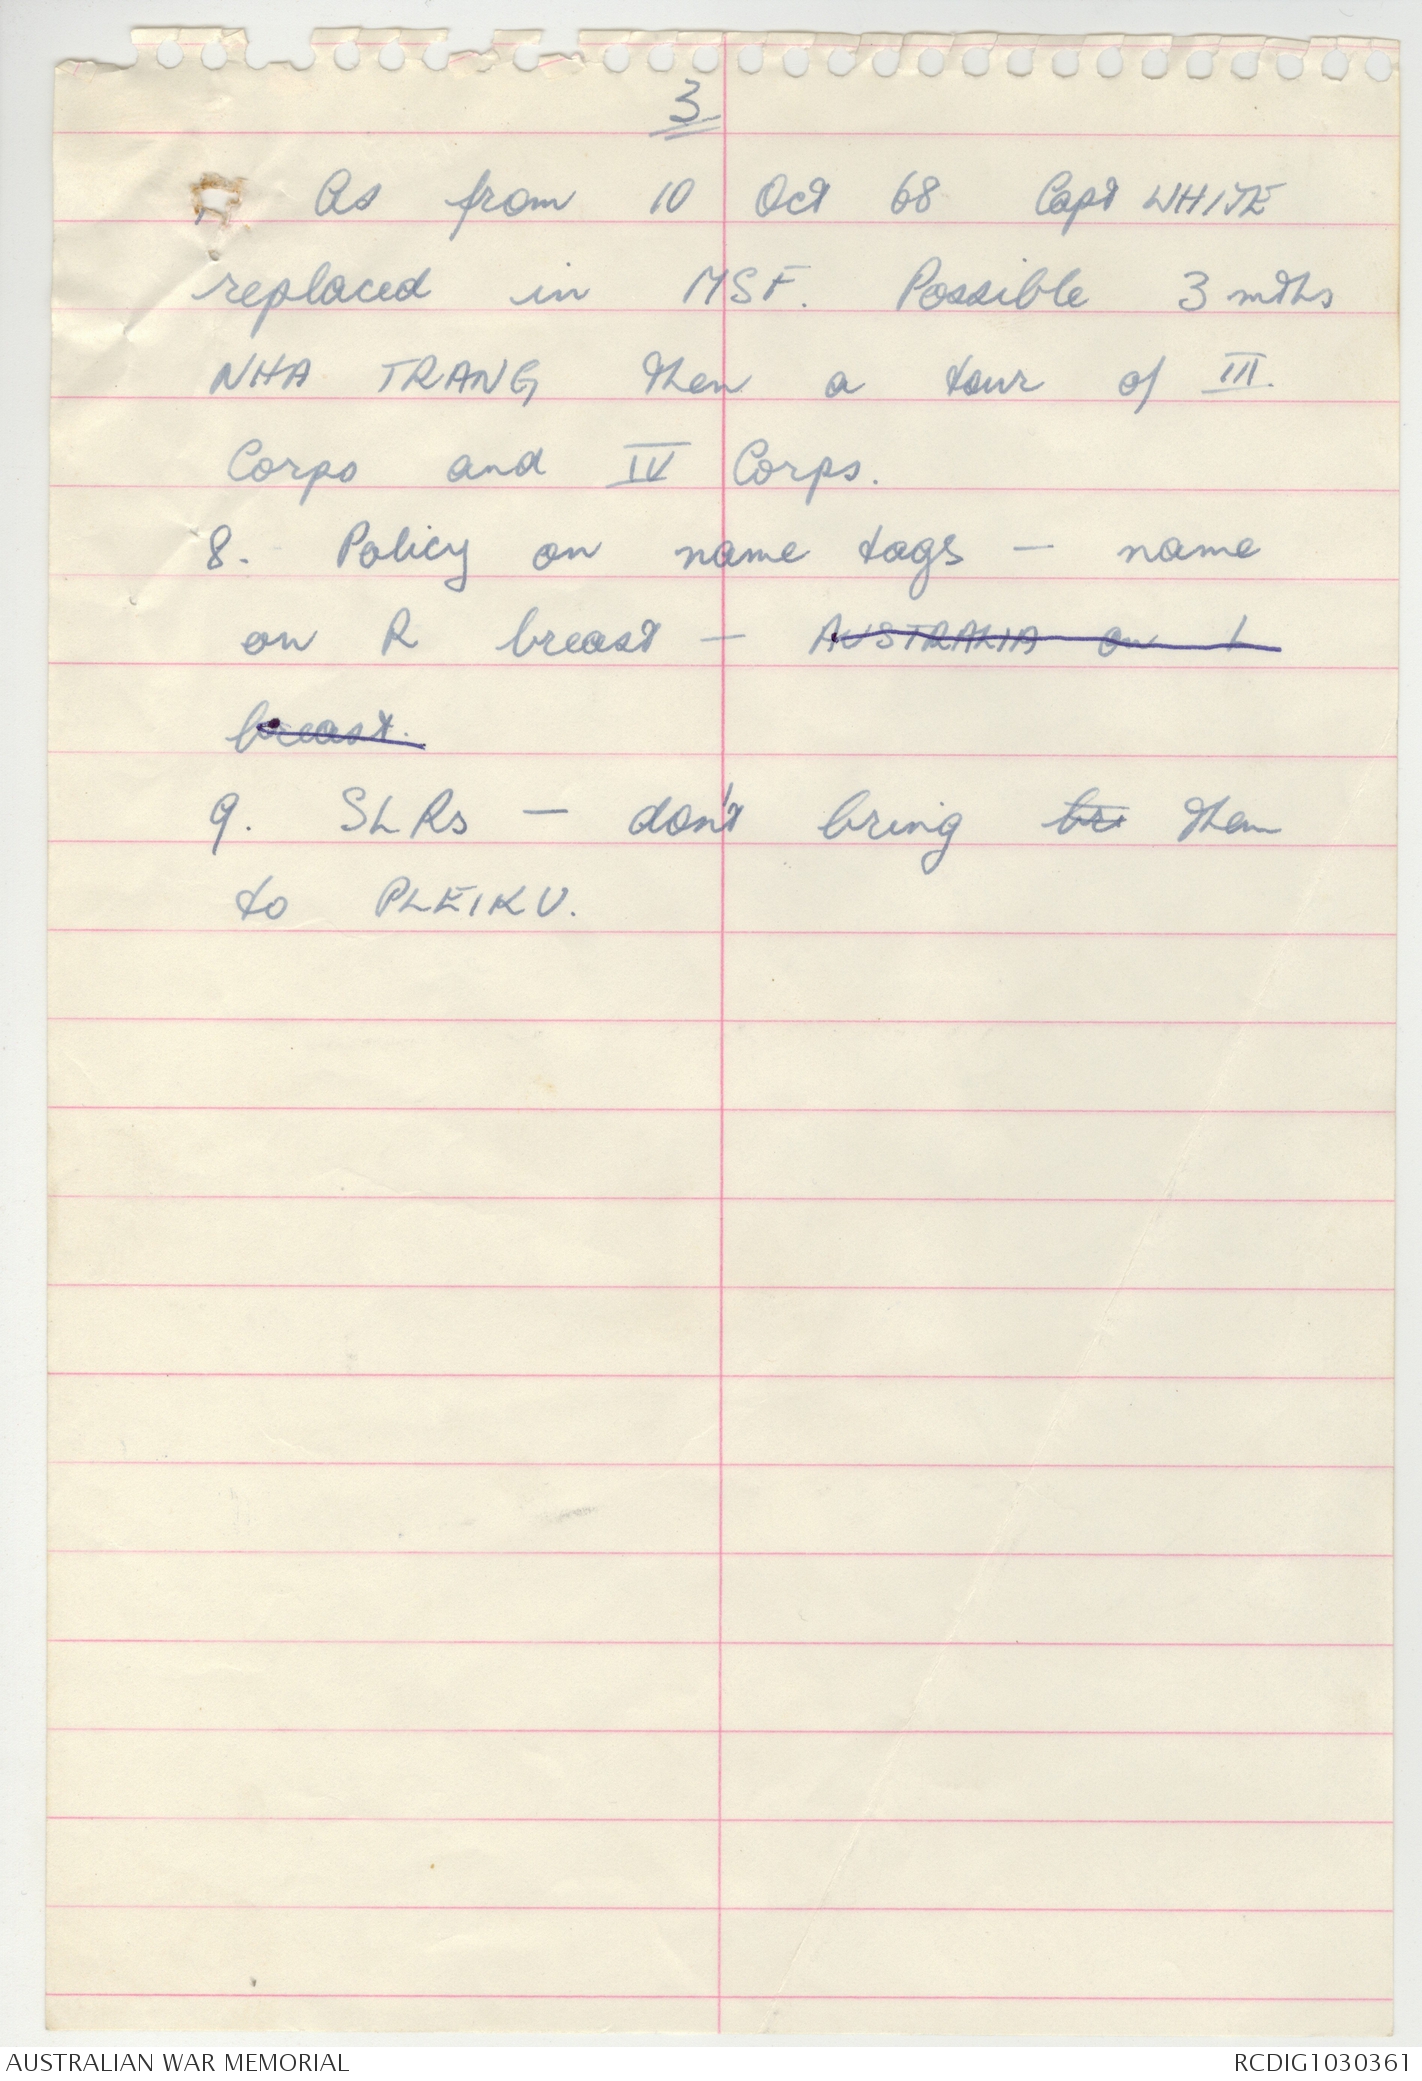 3
As from 10 Oct 68 Capt WHITE
replaced in MSF. Possible 3 mths
NHA TRANG then a tour of III
Corps and IV Corps.
8. Policy on name tags — name
on R breast — AUSTRALIA on L
breast.
9. SLRs — don't bring br them
to PLEIKU.
AUSTRALIAN WAR MEMORIAL RCDIG1030361